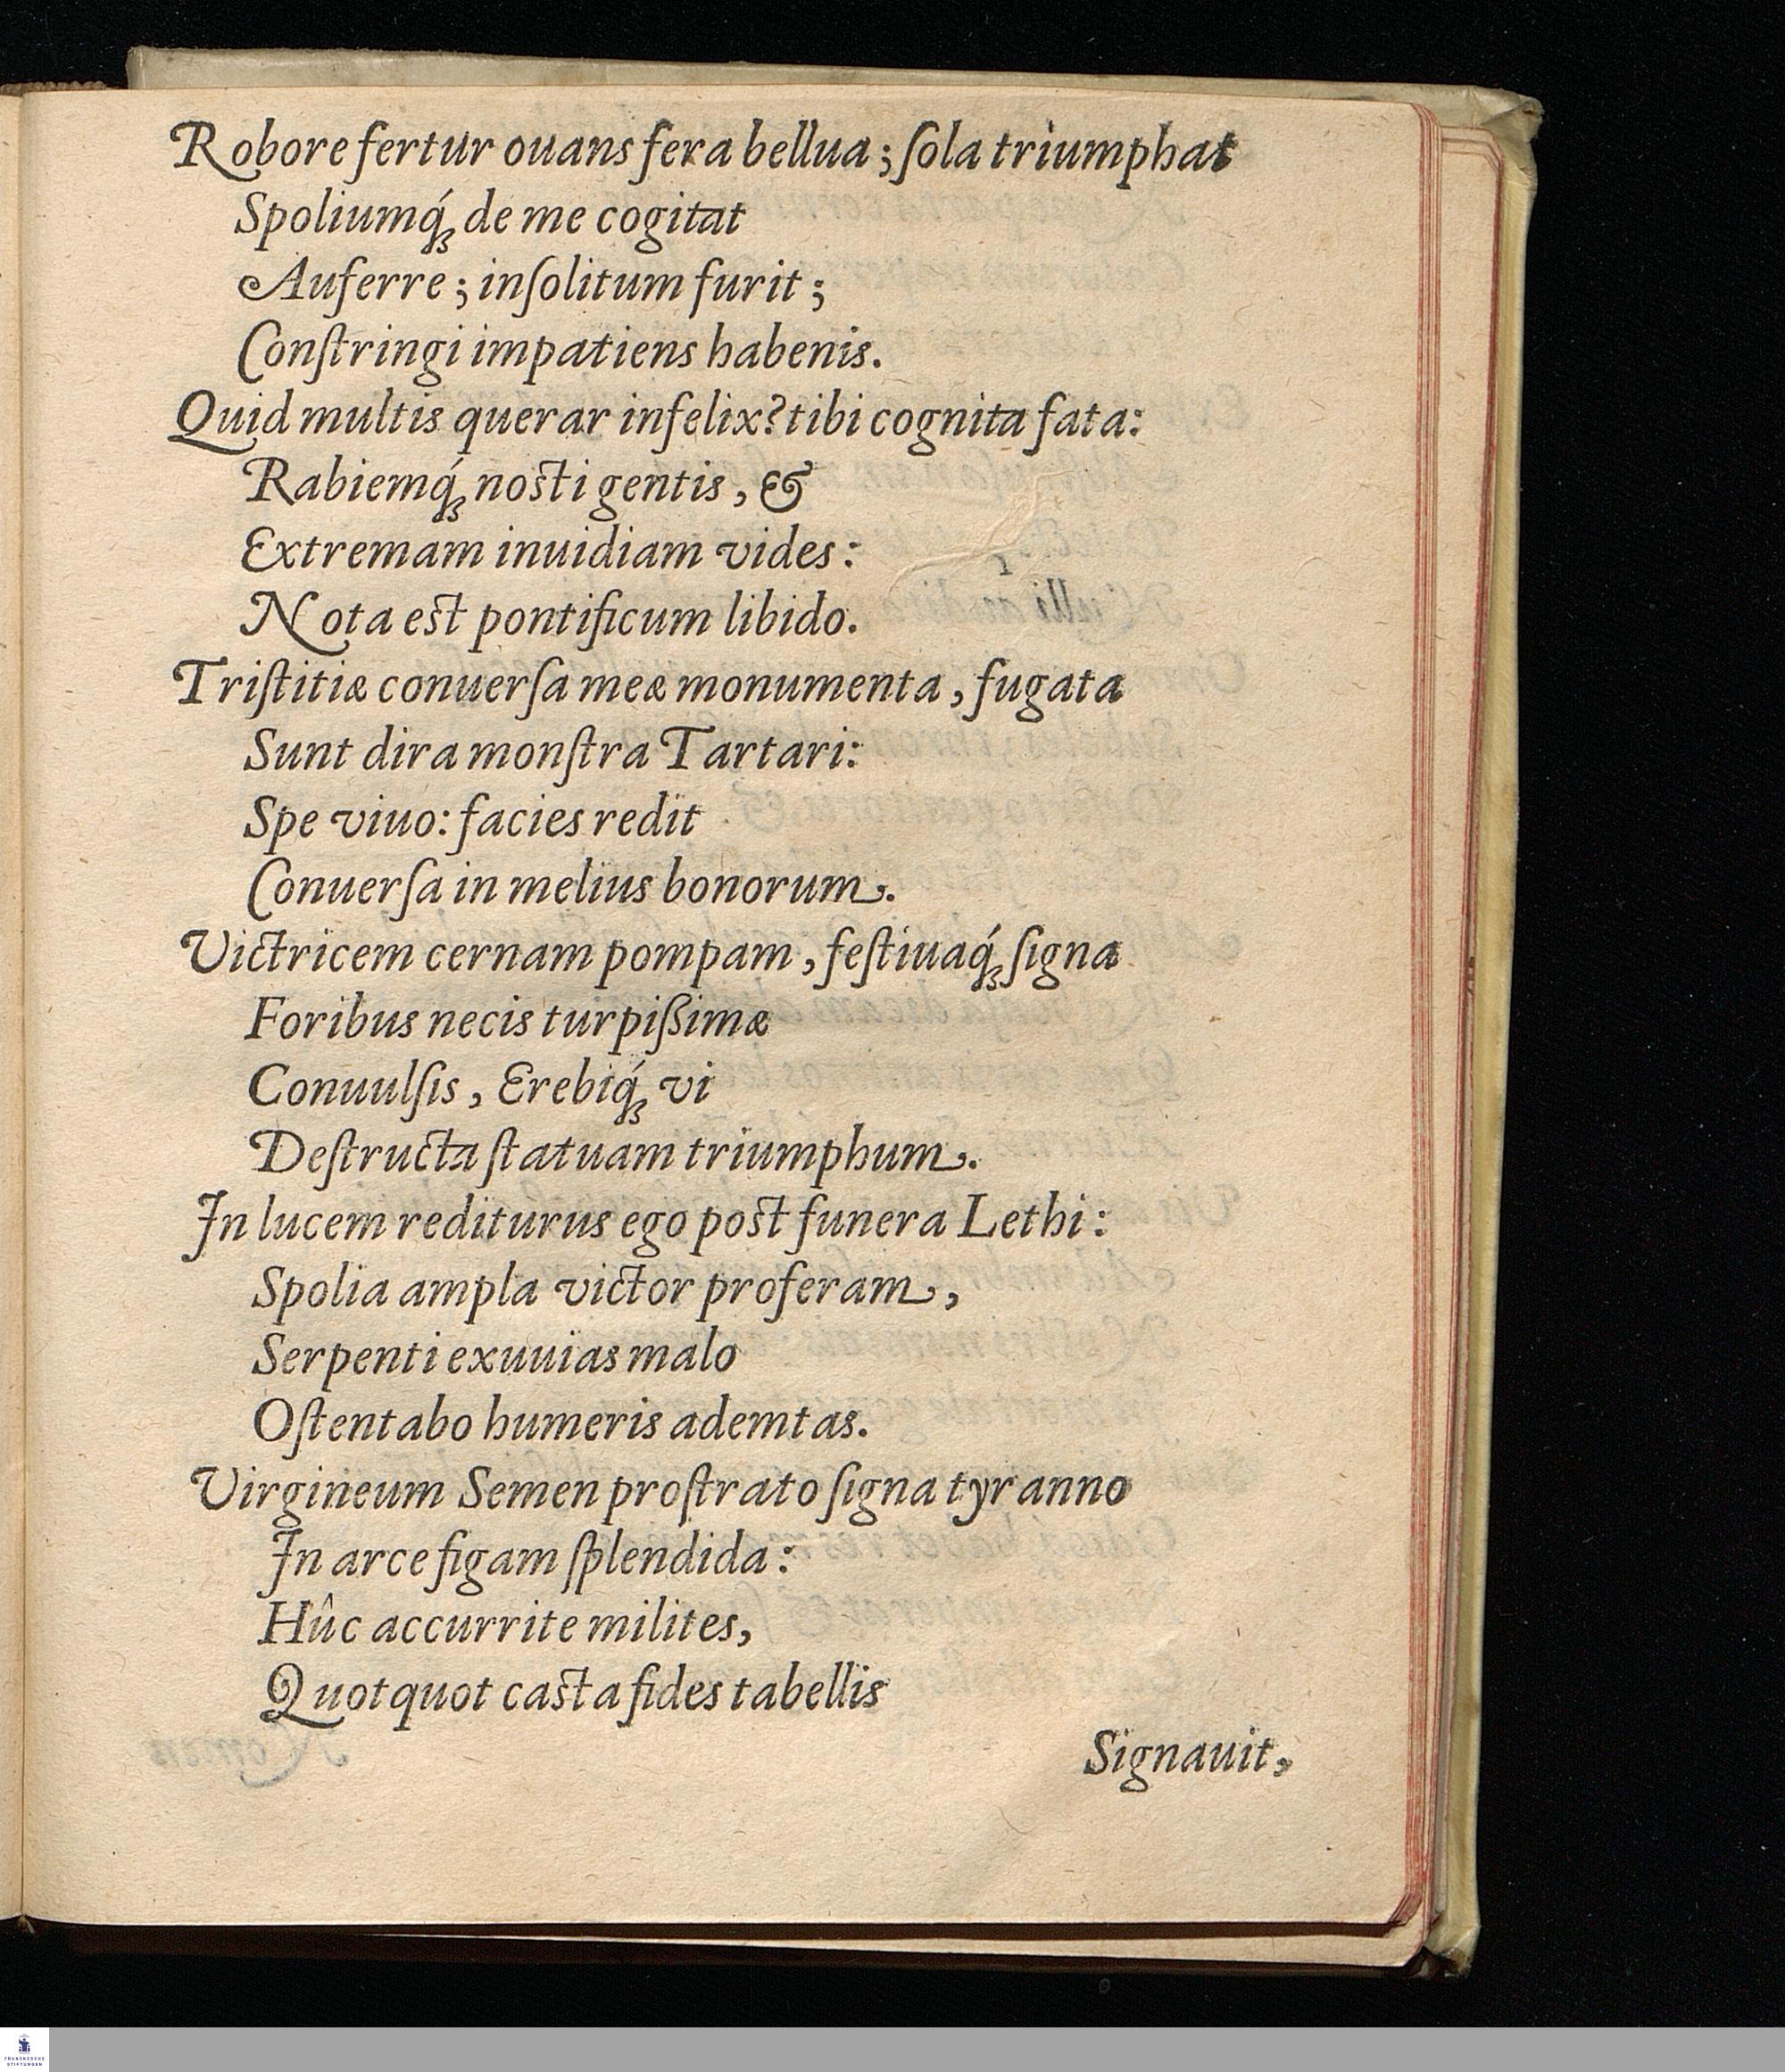 Robore fertur ouans fera bellua; ſola triumphat
Spoliumq́ꝫ de me cogitat
Auferre; inſolitum furit;
Conſtringi impatiens habenis.
Quid multis querar infelix? tibi cognita fata:
Rabiemq́ꝫ nosti gentis, &
Extremam inuidiam vides:
Nota est pontificum libido.
Triſtitiæ conuerſa meæ monumenta, fugata
Sunt dira monſtra Tartari:
Spe viuo: facies redit
Conuerſa in melius bonorum.
Victricem cernam pompam, feſtiuaq́ꝫ ſigna
Foribus necis turpißimæ
Conuulſis, Erebiq́ꝫ vi
Deſtructa ſtatuam triumphum.
In lucem rediturus ego post funera Lethi:
Spolia ampla victor proferam,
Serpenti exuuias malo
Oſtentabo humeris ademtas.
Virgineum Semen proſtrato ſigna tyranno
In arce figam ſplendida:
Hûc accurrite milites,
Quotquot casta fides tabellis
Signauit,
FRANCKESCHE
STIFTUNGEN